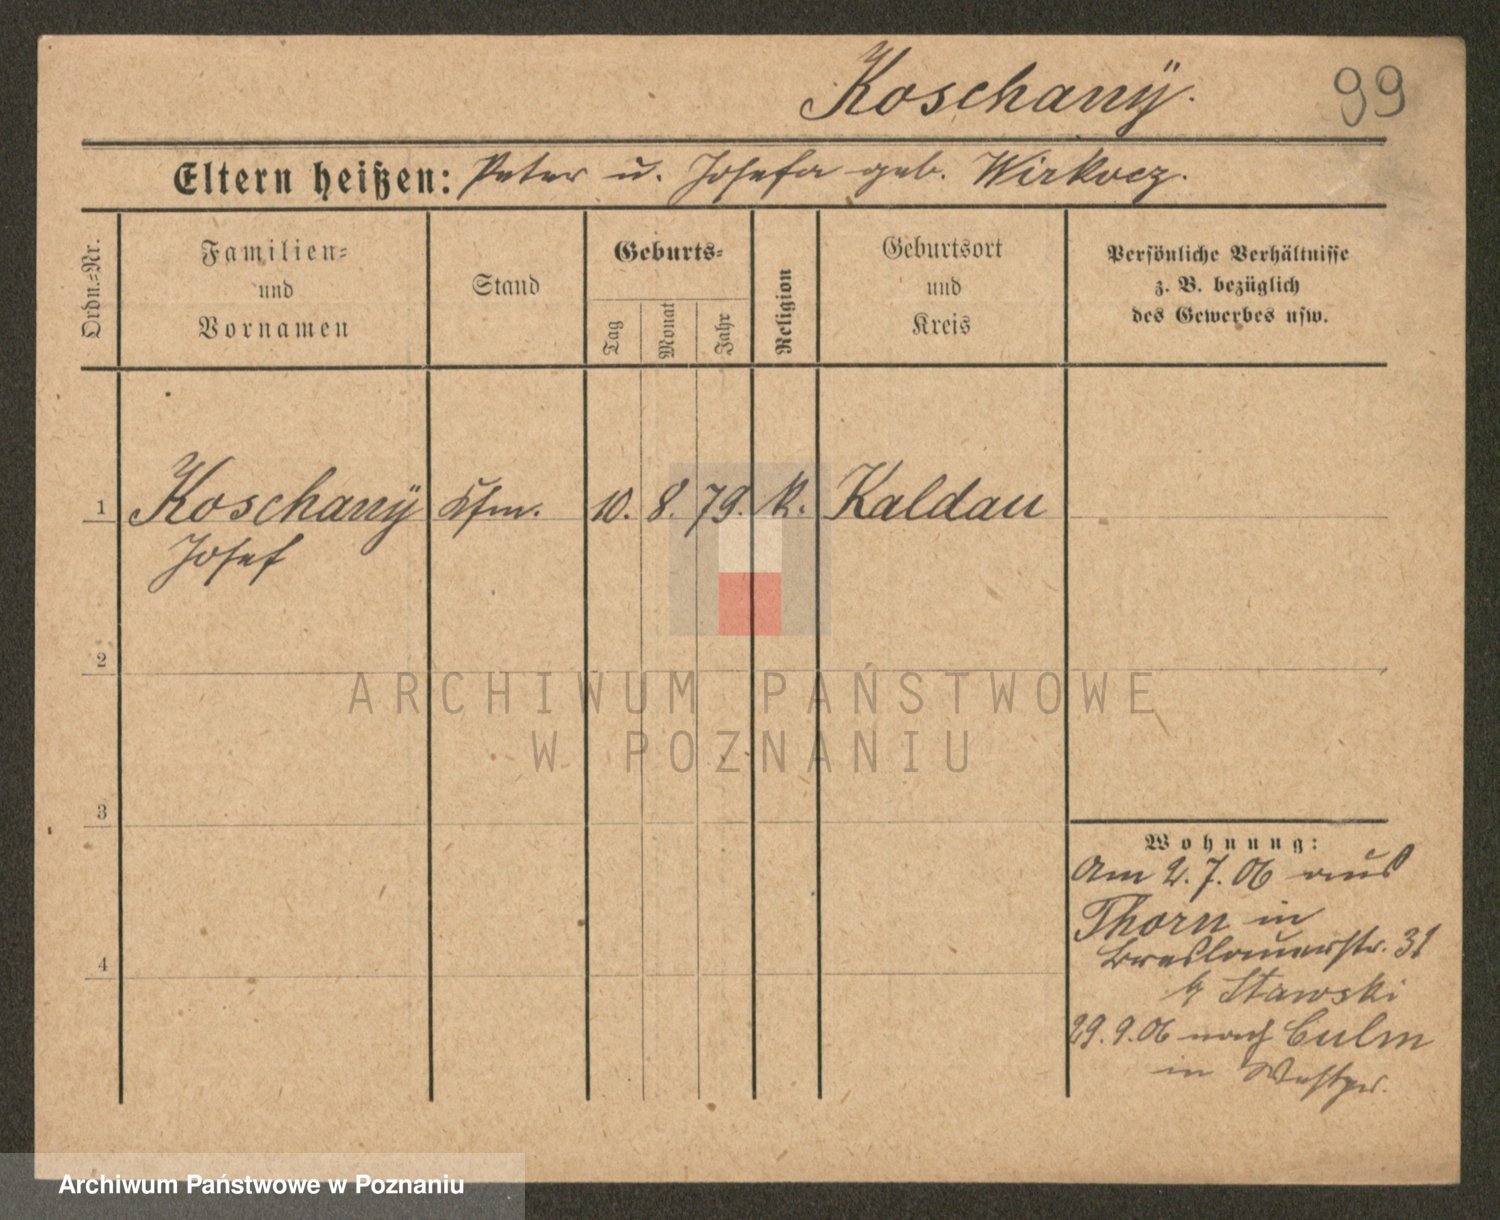 Koschanÿ.
99
Eltern heißen: Peter u. Josefa geb. Wirkocz.
Ordn.-Nr.
Familien-
und
Vornamen
Stand
Geburts-
Tag
Monat
Jahr
Religion
Geburtsort
und
Kreis
Persönliche Verhältnisse
z. B. bezüglich
des Gewerbes usw.
1 Koschanÿ Kfm. 10. 8. 79. k. Kaldau
Josef
2
ARCHIWUM PAŃSTWOWE
W POZNANIU
3
Wohnung:
Am 2. 7. 06 aus
Thorn in
Breslauerstr. 31
4
b/ Stawski
29. 9. 06 nach Culm
in Westpr.
Archiwum Państwowe w Poznaniu